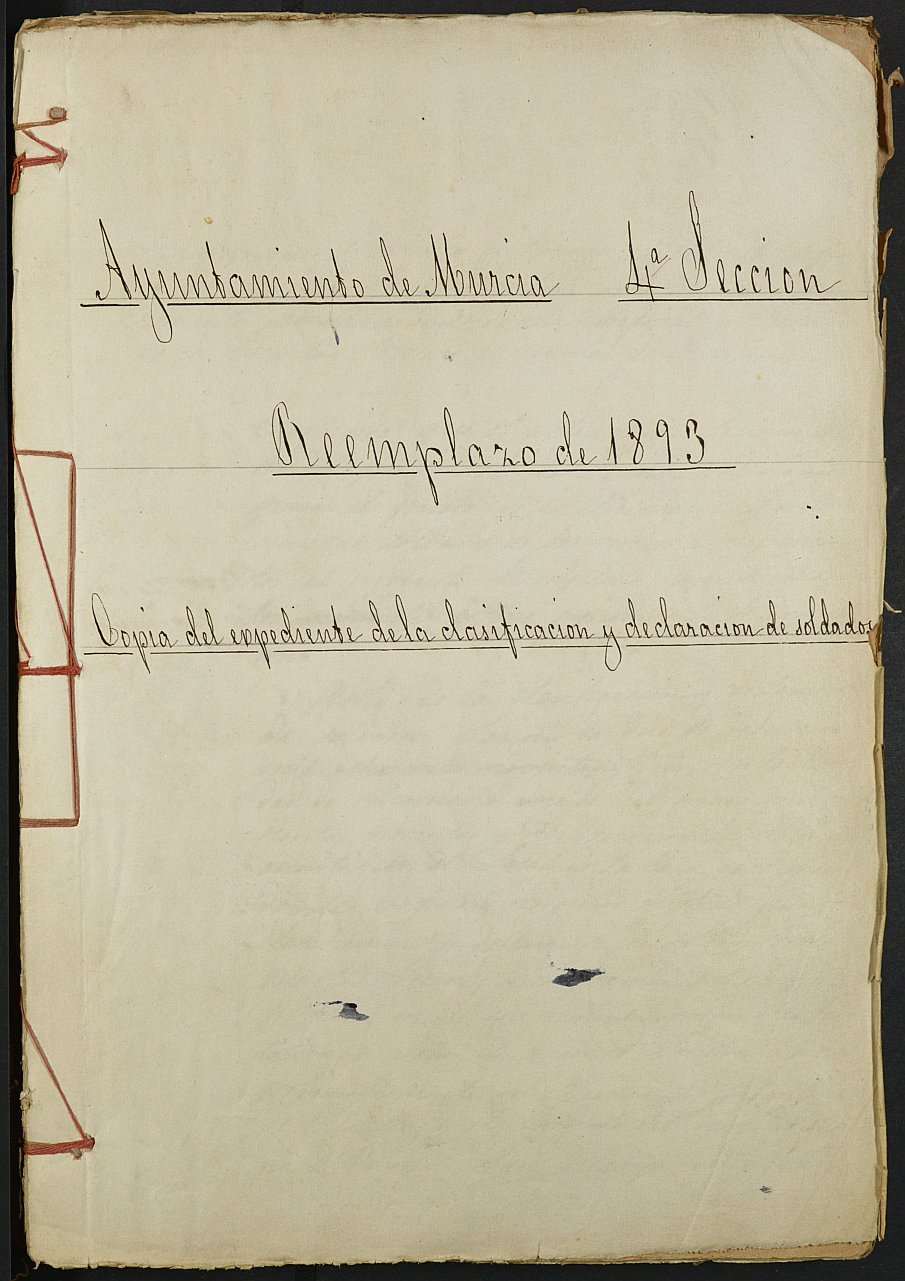 Ayuntamiento de Murcia 4ª Seccion
Reemplazo de 1893
Copia del expediente de la clasificacion y declaracion de soldados